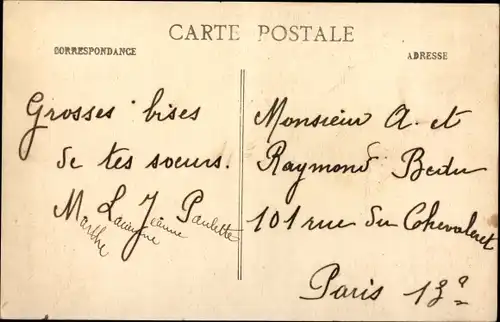 CARTE POSTALE
CORRESPONDANCE
ADRESSE
Grosses bises
de tes soeurs.
Marthe Jeanne Paulette
Monsieur A. et
Raymond
101 rue du Chevaleret
Paris 13e